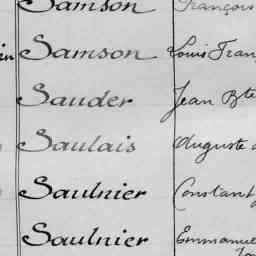 Samson François
in Samson Louis Fran
Sauder Jean Bte
Saulais Auguste
Saulnier Constant
Saulnier Emmanuel